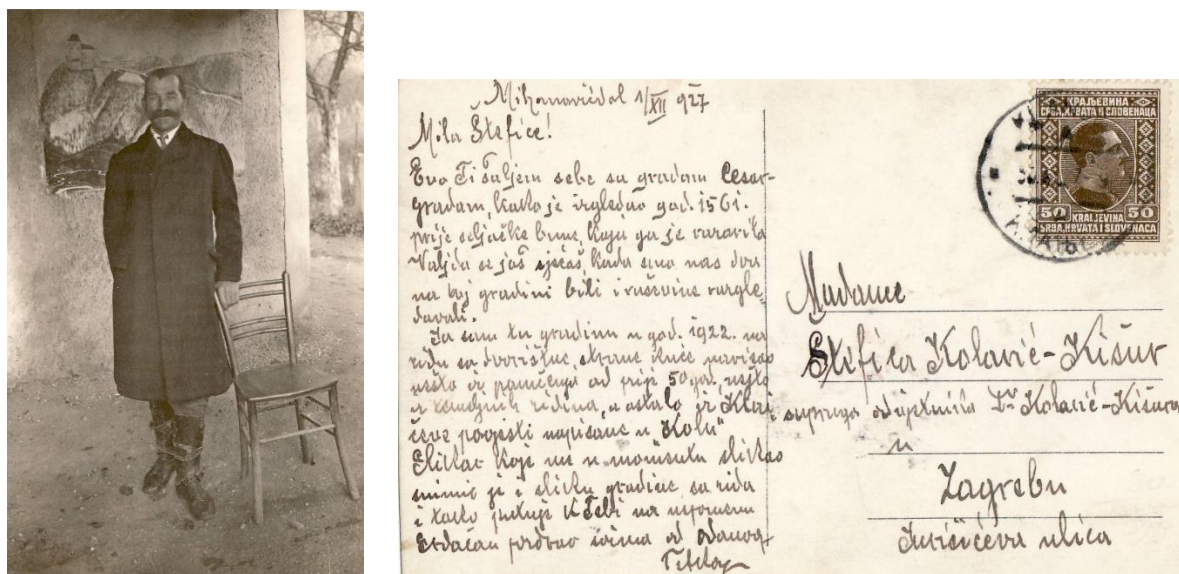 Mihanovićdol 1/XII 927
Mila Štefice!
Evo Ti šaljem sebe sa gradom Cesar-
gradom, kako je izgledao god. 1561.
prije seljačke bune, koja ga je razorila
Valjda se još sjećaš, kada smo nas dva
na toj gradini bili i ruševine razgle-
davali.
Ja sam tu gradinu u god. 1922. na
zidu sa dvorišne strane kuće narisao
nešto iz pamćenja od prije 50 god. nešto
iz zidina, a ostalo iz Klai-
ćeve povjesti napisane u "Kolu"
Slikar koji me u momentu slikao
snimio je i sliku gradine sa zida
i tako putuje k Tebi na uspomenu
Srdačan pozdrav svima od odanog
КРАЉЕВИНА
СРБА, ХРВАТА И СЛОВЕНАЦА
50 KRALJEVINA 50
SRBA, HRVATA I SLOVENACA
Madame
Štefica Kolarić-Kišur
supruga odvjetnika Dr Kolarić-Kišura
u
Zagrebu
Jurišićeva ulica